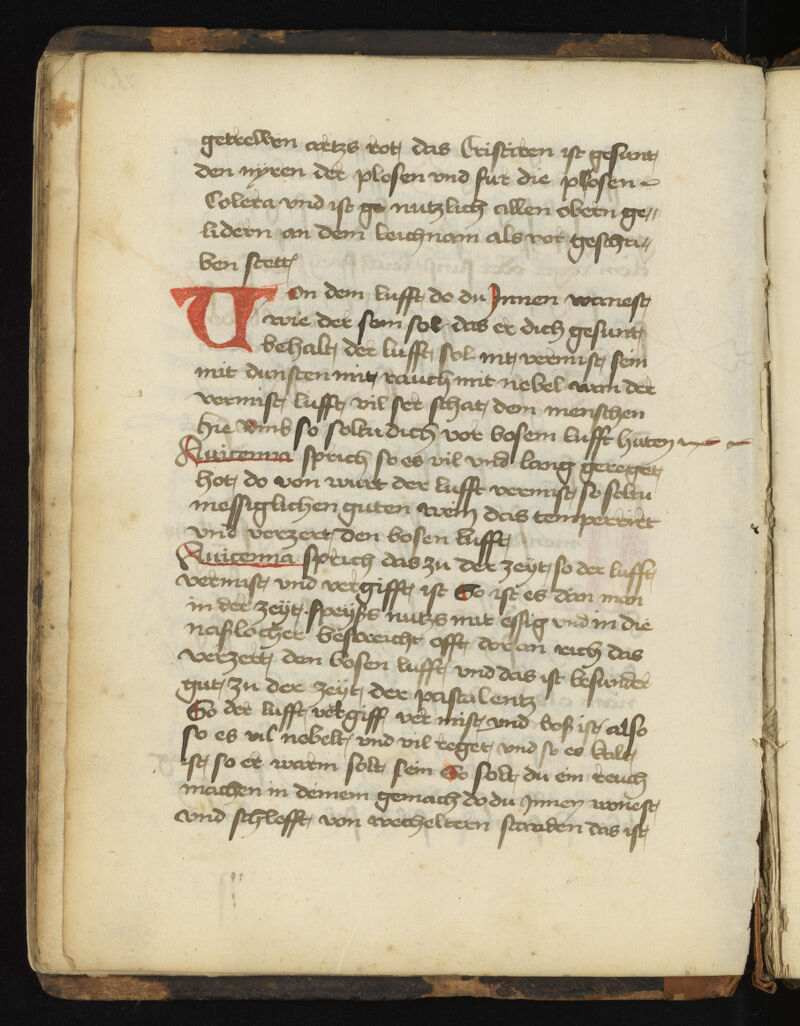 getrewen artzs rot das Cristiren ist gesunt
den nyren der plosen vnd fur die plosen
Colera vnd ist ge nutzlich allen obern ge„
lidern an dem leichnam als vor geschri„
ben stett
Von dem lufft do du Jnnen wonest
wie der sein sol das er dich gesunt
behalt der lufft sol nit vermist sein
mit dunsten mit rauch mit nebel wan der
vermist lufft vil ser schat dem menschen
hie vmb so soltu dich vor bosem lufft huten
Auicenna sprich so es vil vnd lang gereget
hot do von wurt der lufft vermist so soltu
messiglichen guten wein das temperirt
vnd verzert den bosen lufft
Auicenna sprich das zu der zeyt so der lufft
vermist vnd vergifft ist So ist es dan man
in der zeyt speyss nutzs mit essig vnd in die
naßlocher bestreicht offt dor an rich das
verzert den bosen lufft vnd das ist besunder
gut zu der zeyt der pastalentz
So der lufft vergiff ver mist vnd boß ist also
so es vil nebelt vnd vil reget vnd so es kalt
ist so er warm solt sein So solt du ein reuch
machen in deinem gemach do du Jnnen wonest
vnd schlefft von wecheltern stauden das ist